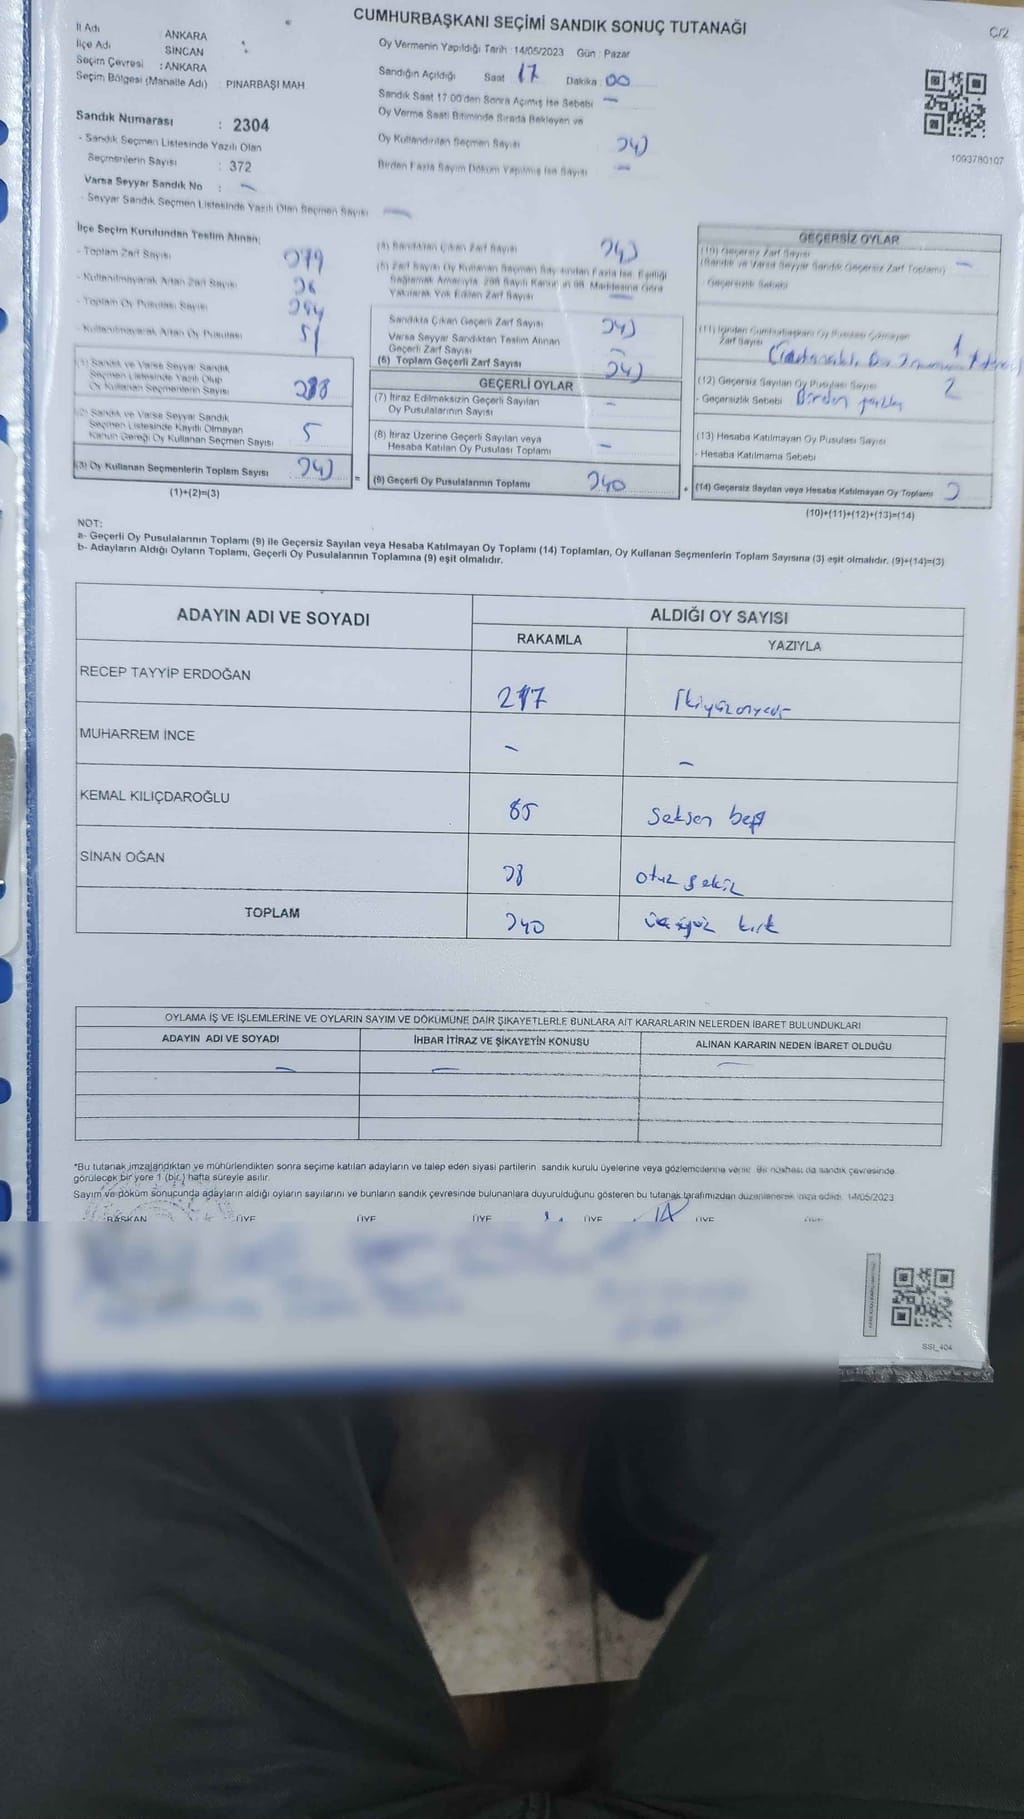 CUMHURBAŞKANI SEÇİMİ SANDIK SONUÇ TUTANAĞI
C/2
İl Adı : ANKARA
İlçe Adı : SİNCAN
Seçim Çevresi : ANKARA
Seçim Bölgesi (Mahalle Adı) : PINARBAŞI MAH
Oy Vermenin Yapıldığı Tarih : 14/05/2023 Gün : Pazar
Sandığın Açıldığı Saat 17 Dakika : 00
Sandık Saat 17:00'den Sonra Açılmış İse Sebebi –
Oy Verme Saati Bitiminde Sırada Bekleyen ve
Oy Kullandırılan Seçmen Sayısı 343
Birden Fazla Sayım Döküm Yapılmış İse Sayısı –
1093780107
Sandık Numarası : 2304
- Sandık Seçmen Listesinde Yazılı Olan
Seçmenlerin Sayısı : 372
Varsa Seyyar Sandık No : –
- Seyyar Sandık Seçmen Listesinde Yazılı Olan Seçmen Sayısı –
İlçe Seçim Kurulundan Teslim Alınan;
- Toplam Zarf Sayısı 379
- Kullanılmayarak Artan Zarf Sayısı 36
- Toplam Oy Pusulası Sayısı 394
- Kullanılmayarak Artan Oy Pusulası 51
(1) Sandık ve Varsa Seyyar Sandık
Seçmen Listesinde Yazılı Olup
Oy Kullanan Seçmenlerin Sayısı 338
(2) Sandık ve Varsa Seyyar Sandık
Seçmen Listesinde Kayıtlı Olmayan
Kanun Gereği Oy Kullanan Seçmen Sayısı 5
(3) Oy Kullanan Seçmenlerin Toplam Sayısı 343
(1)+(2)=(3)
(4) Sandıktan Çıkan Zarf Sayısı 343
(5) Zarf Sayısı Oy Kullanan Seçmen Sayısından Fazla İse, Eşitliği
Sağlamak Amacıyla, 298 Sayılı Kanun'un 98. Maddesine Göre
Yakılarak Yok Edilen Zarf Sayısı –
Sandıkta Çıkan Geçerli Zarf Sayısı 343
Varsa Seyyar Sandıktan Teslim Alınan
Geçerli Zarf Sayısı –
(6) Toplam Geçerli Zarf Sayısı 343
GEÇERLİ OYLAR
(7) İtiraz Edilmeksizin Geçerli Sayılan
Oy Pusulalarının Sayısı –
(8) İtiraz Üzerine Geçerli Sayılan veya
Hesaba Katılan Oy Pusulası Toplamı –
= (9) Geçerli Oy Pusulalarının Toplamı 340
GEÇERSİZ OYLAR
(10) Geçersiz Zarf Sayısı
(Sandık ve Varsa Seyyar Sandık Geçersiz Zarf Toplamı) –
- Geçersizlik Sebebi
(11) İçinden Cumhurbaşkanı Oy Pusulası Çıkmayan
Zarf Sayısı 1
(12) Geçersiz Sayılan Oy Pusulası Sayısı 2
- Geçersizlik Sebebi Birden fazla
(13) Hesaba Katılmayan Oy Pusulası Sayısı
- Hesaba Katılmama Sebebi
+ (14) Geçersiz Sayılan veya Hesaba Katılmayan Oy Toplamı 3
(10)+(11)+(12)+(13)=(14)
NOT:
a- Geçerli Oy Pusulalarının Toplamı (9) ile Geçersiz Sayılan veya Hesaba Katılmayan Oy Toplamı (14) Toplamları, Oy Kullanan Seçmenlerin Toplam Sayısına (3) eşit olmalıdır. (9)+(14)=(3)
b- Adayların Aldığı Oyların Toplamı, Geçerli Oy Pusulalarının Toplamına (9) eşit olmalıdır.
ADAYIN ADI VE SOYADI ALDIĞI OY SAYISI
RAKAMLA YAZIYLA
RECEP TAYYİP ERDOĞAN 217 İkiyüzonyedi
MUHARREM İNCE – –
KEMAL KILIÇDAROĞLU 85 Seksen beş
SİNAN OĞAN 38 otuz sekiz
TOPLAM 340 üçyüz kırk
OYLAMA İŞ VE İŞLEMLERİNE VE OYLARIN SAYIM VE DÖKÜMÜNE DAİR ŞİKAYETLERLE BUNLARA AİT KARARLARIN NELERDEN İBARET BULUNDUKLARI
ADAYIN ADI VE SOYADI İHBAR İTİRAZ VE ŞİKAYETİN KONUSU ALINAN KARARIN NEDEN İBARET OLDUĞU
– – –
*Bu tutanak imzalandıktan ve mühürlendikten sonra seçime katılan adayların ve talep eden siyasi partilerin sandık kurulu üyelerine veya gözlemcilerine verilir. Bir nüshası da sandık çevresinde
görülecek bir yere 1 (bir) hafta süreyle asılır.
Sayım ve döküm sonucunda adayların aldığı oyların sayılarını ve bunların sandık çevresinde bulunanlara duyurulduğunu gösteren bu tutanak tarafımızdan düzenlenerek imza edildi. 14/05/2023
BAŞKAN ÜYE ÜYE ÜYE ÜYE ÜYE
SSI_404